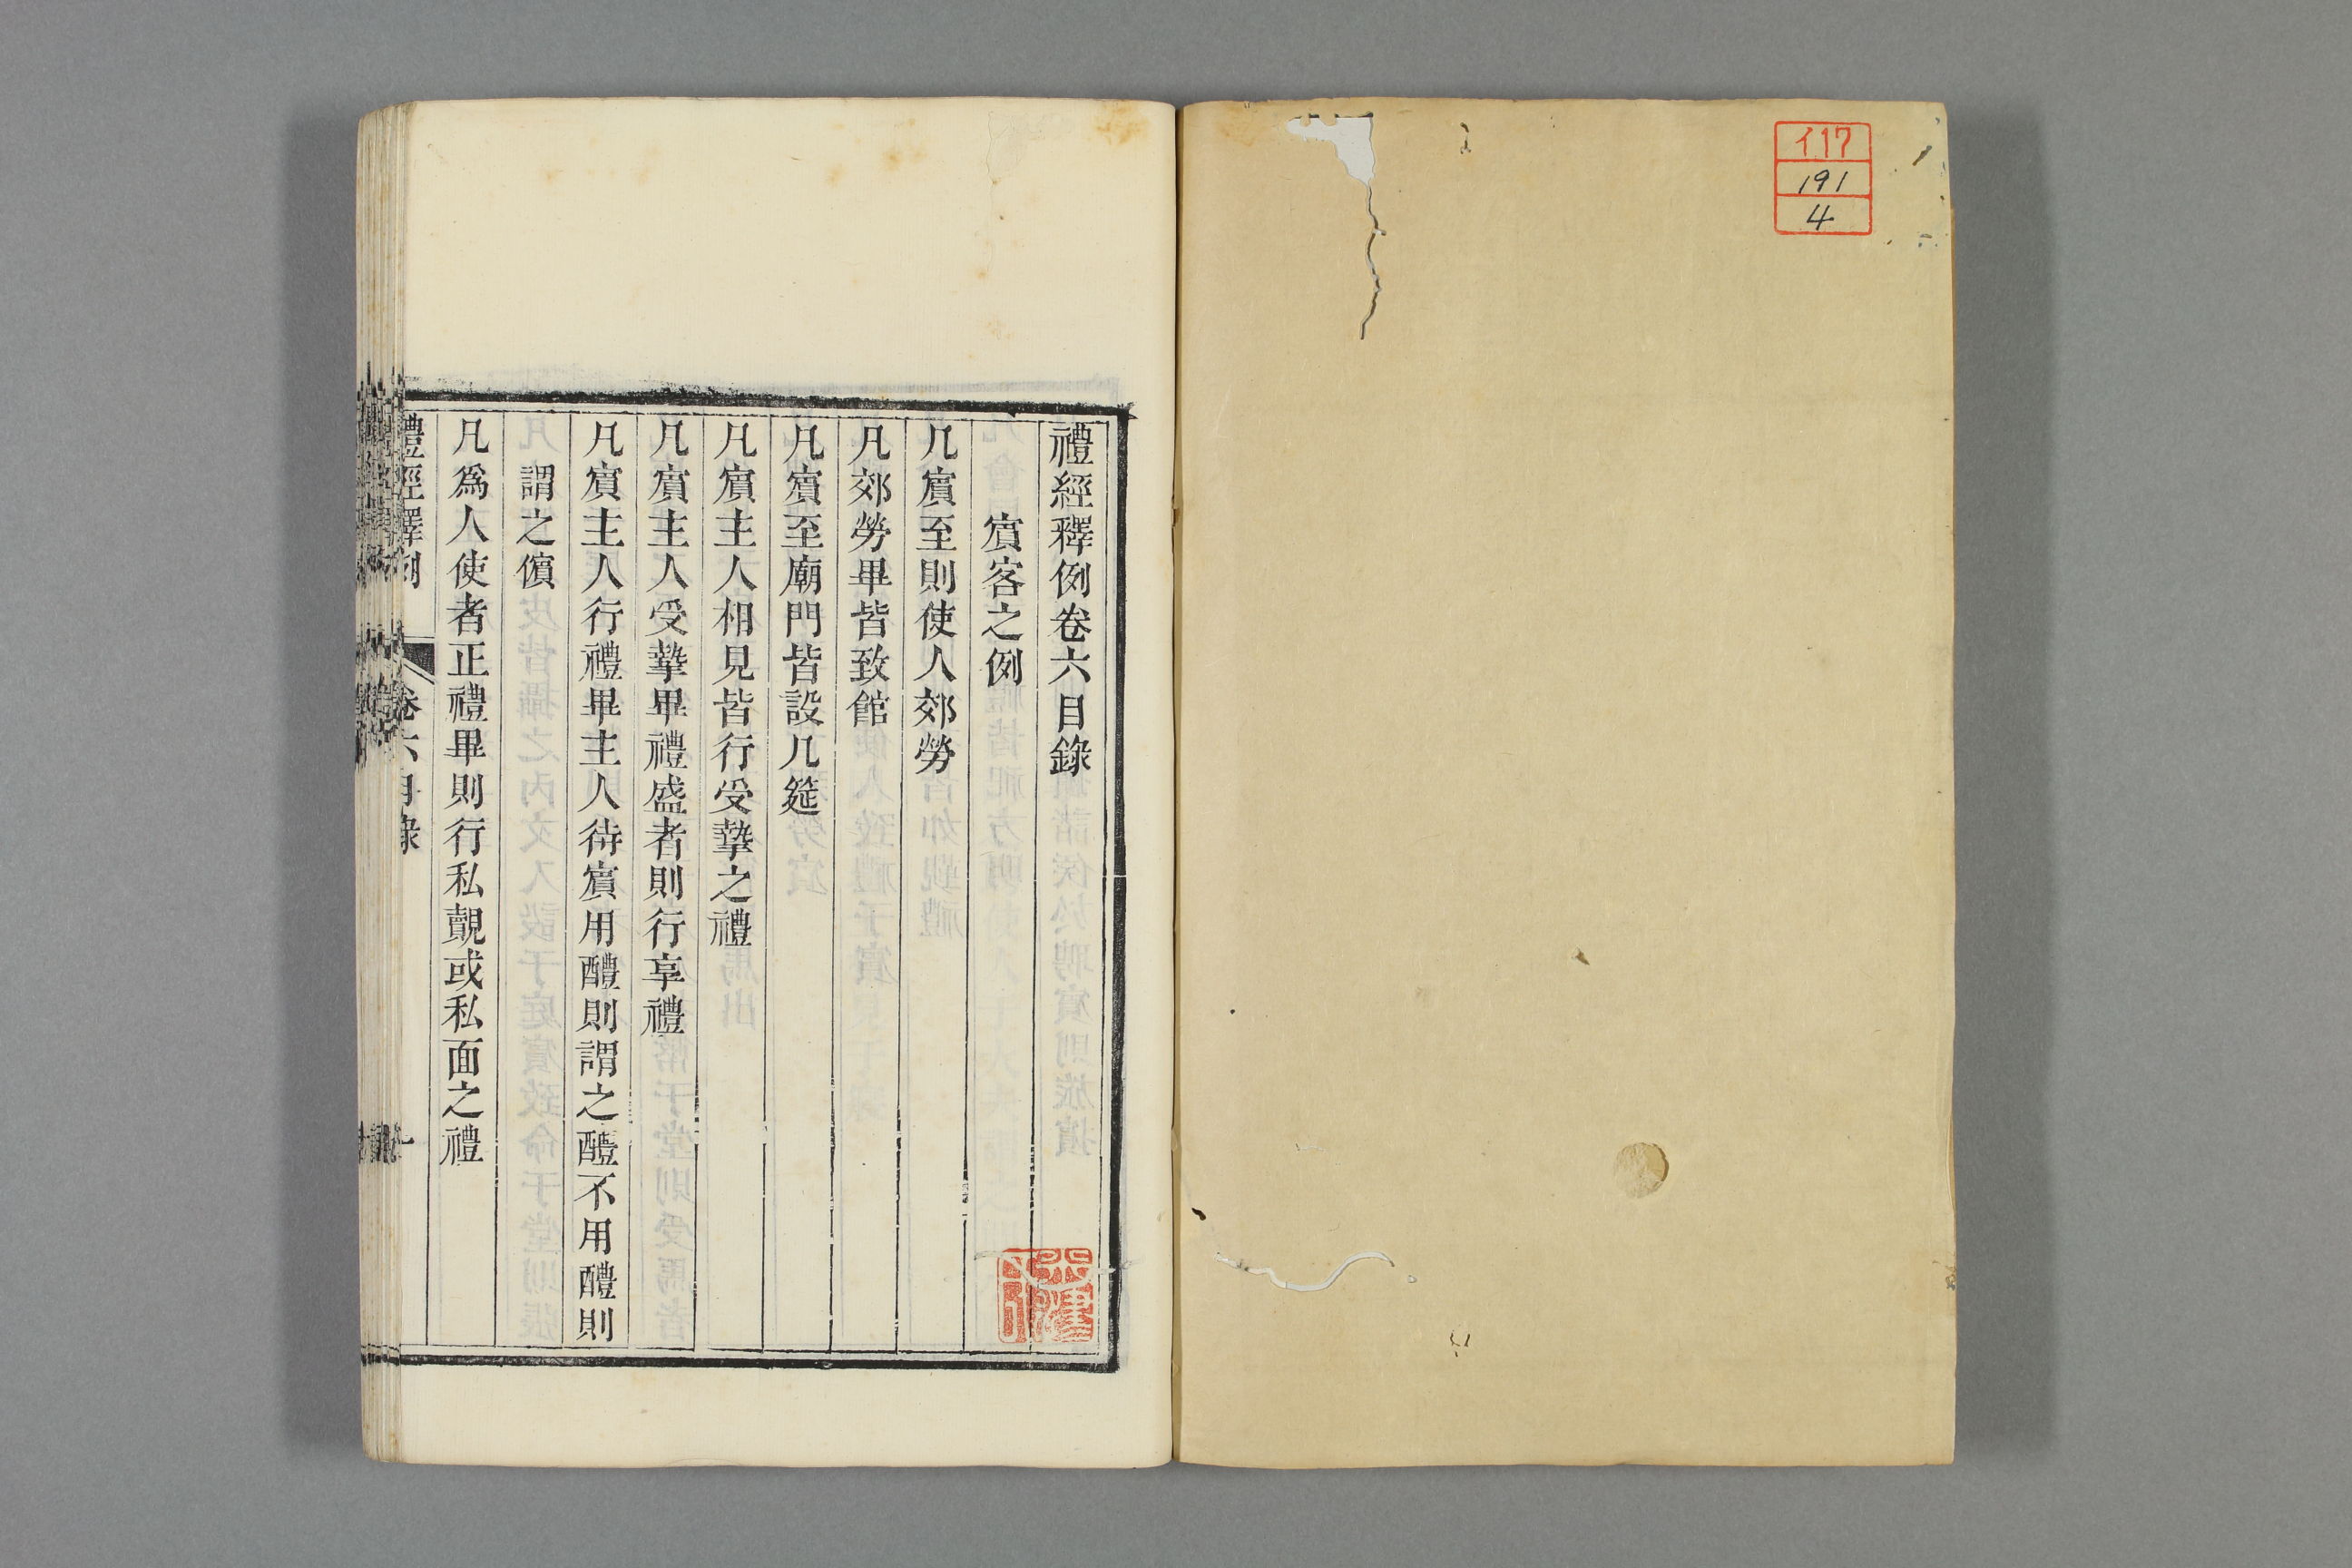 イ17
191
4
禮經釋例卷六目錄
賓客之例
凡賓至則使人郊勞
凡郊勞畢皆致館
凡賓至廟門皆設几筵
凡賓主人相見皆行受摯之禮
凡賓主人受摯畢禮盛者則行享禮
凡賓主人行禮畢主人待賓用醴則謂之醴不用醴則
謂之儐
凡爲人使者正禮畢則行私覿或私面之禮
禮經釋例 卷六目錄 一